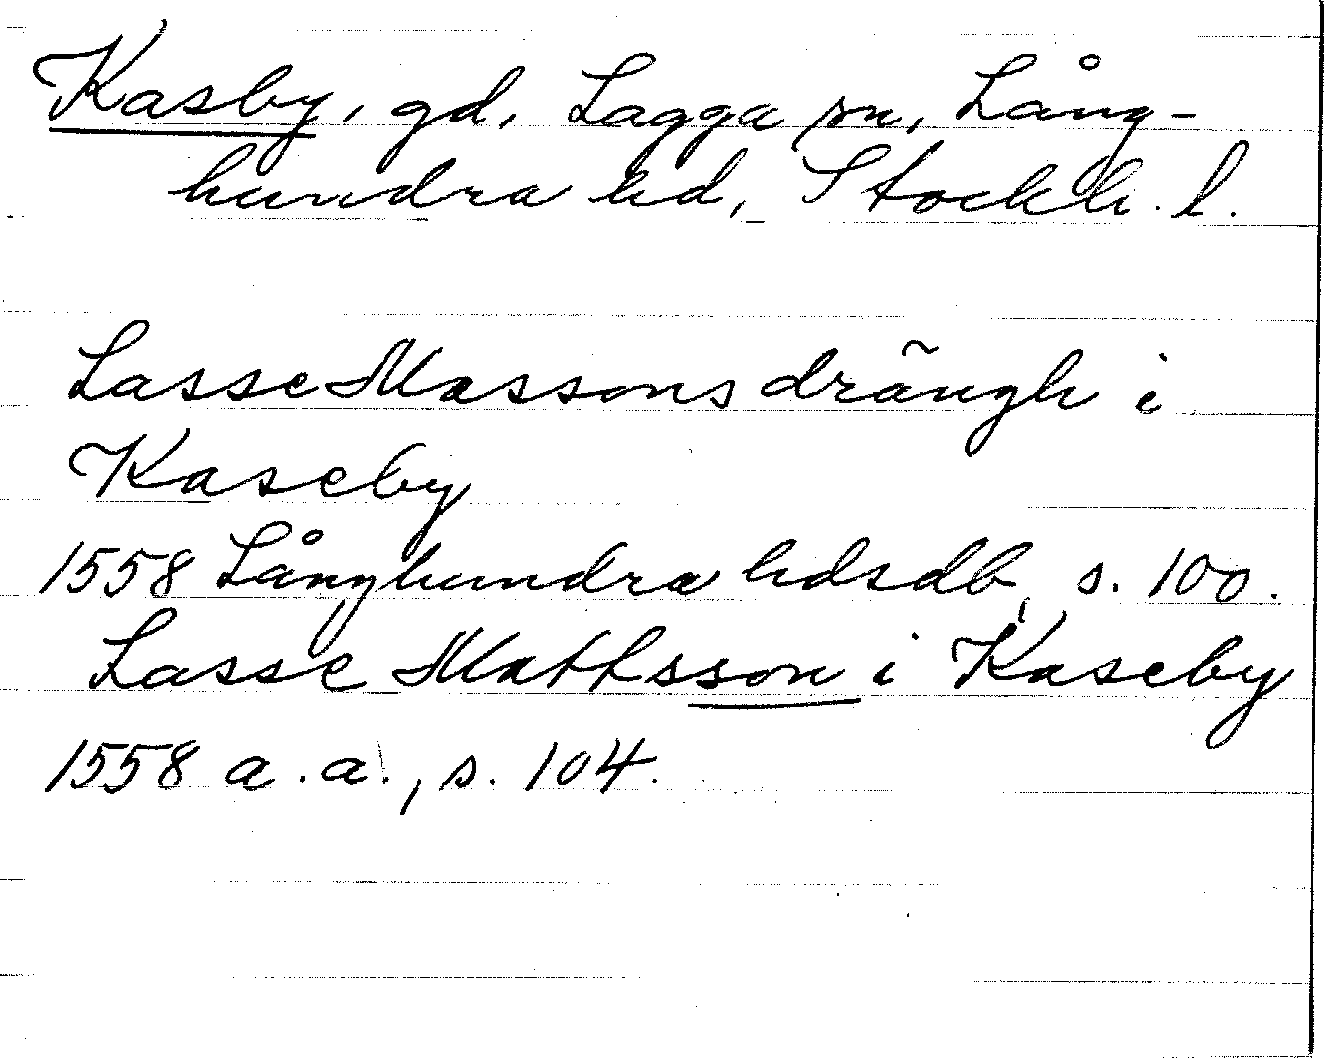 Kasby, gd, Lagga sn, Lång-
hundra hd, Stockh. l.
Lasse Massons drãngh i
Kaseby
1558 Långhundra hdsdb, s. 100.
Lasse Mattsson i Kaseby
1558 a.a., s. 104.